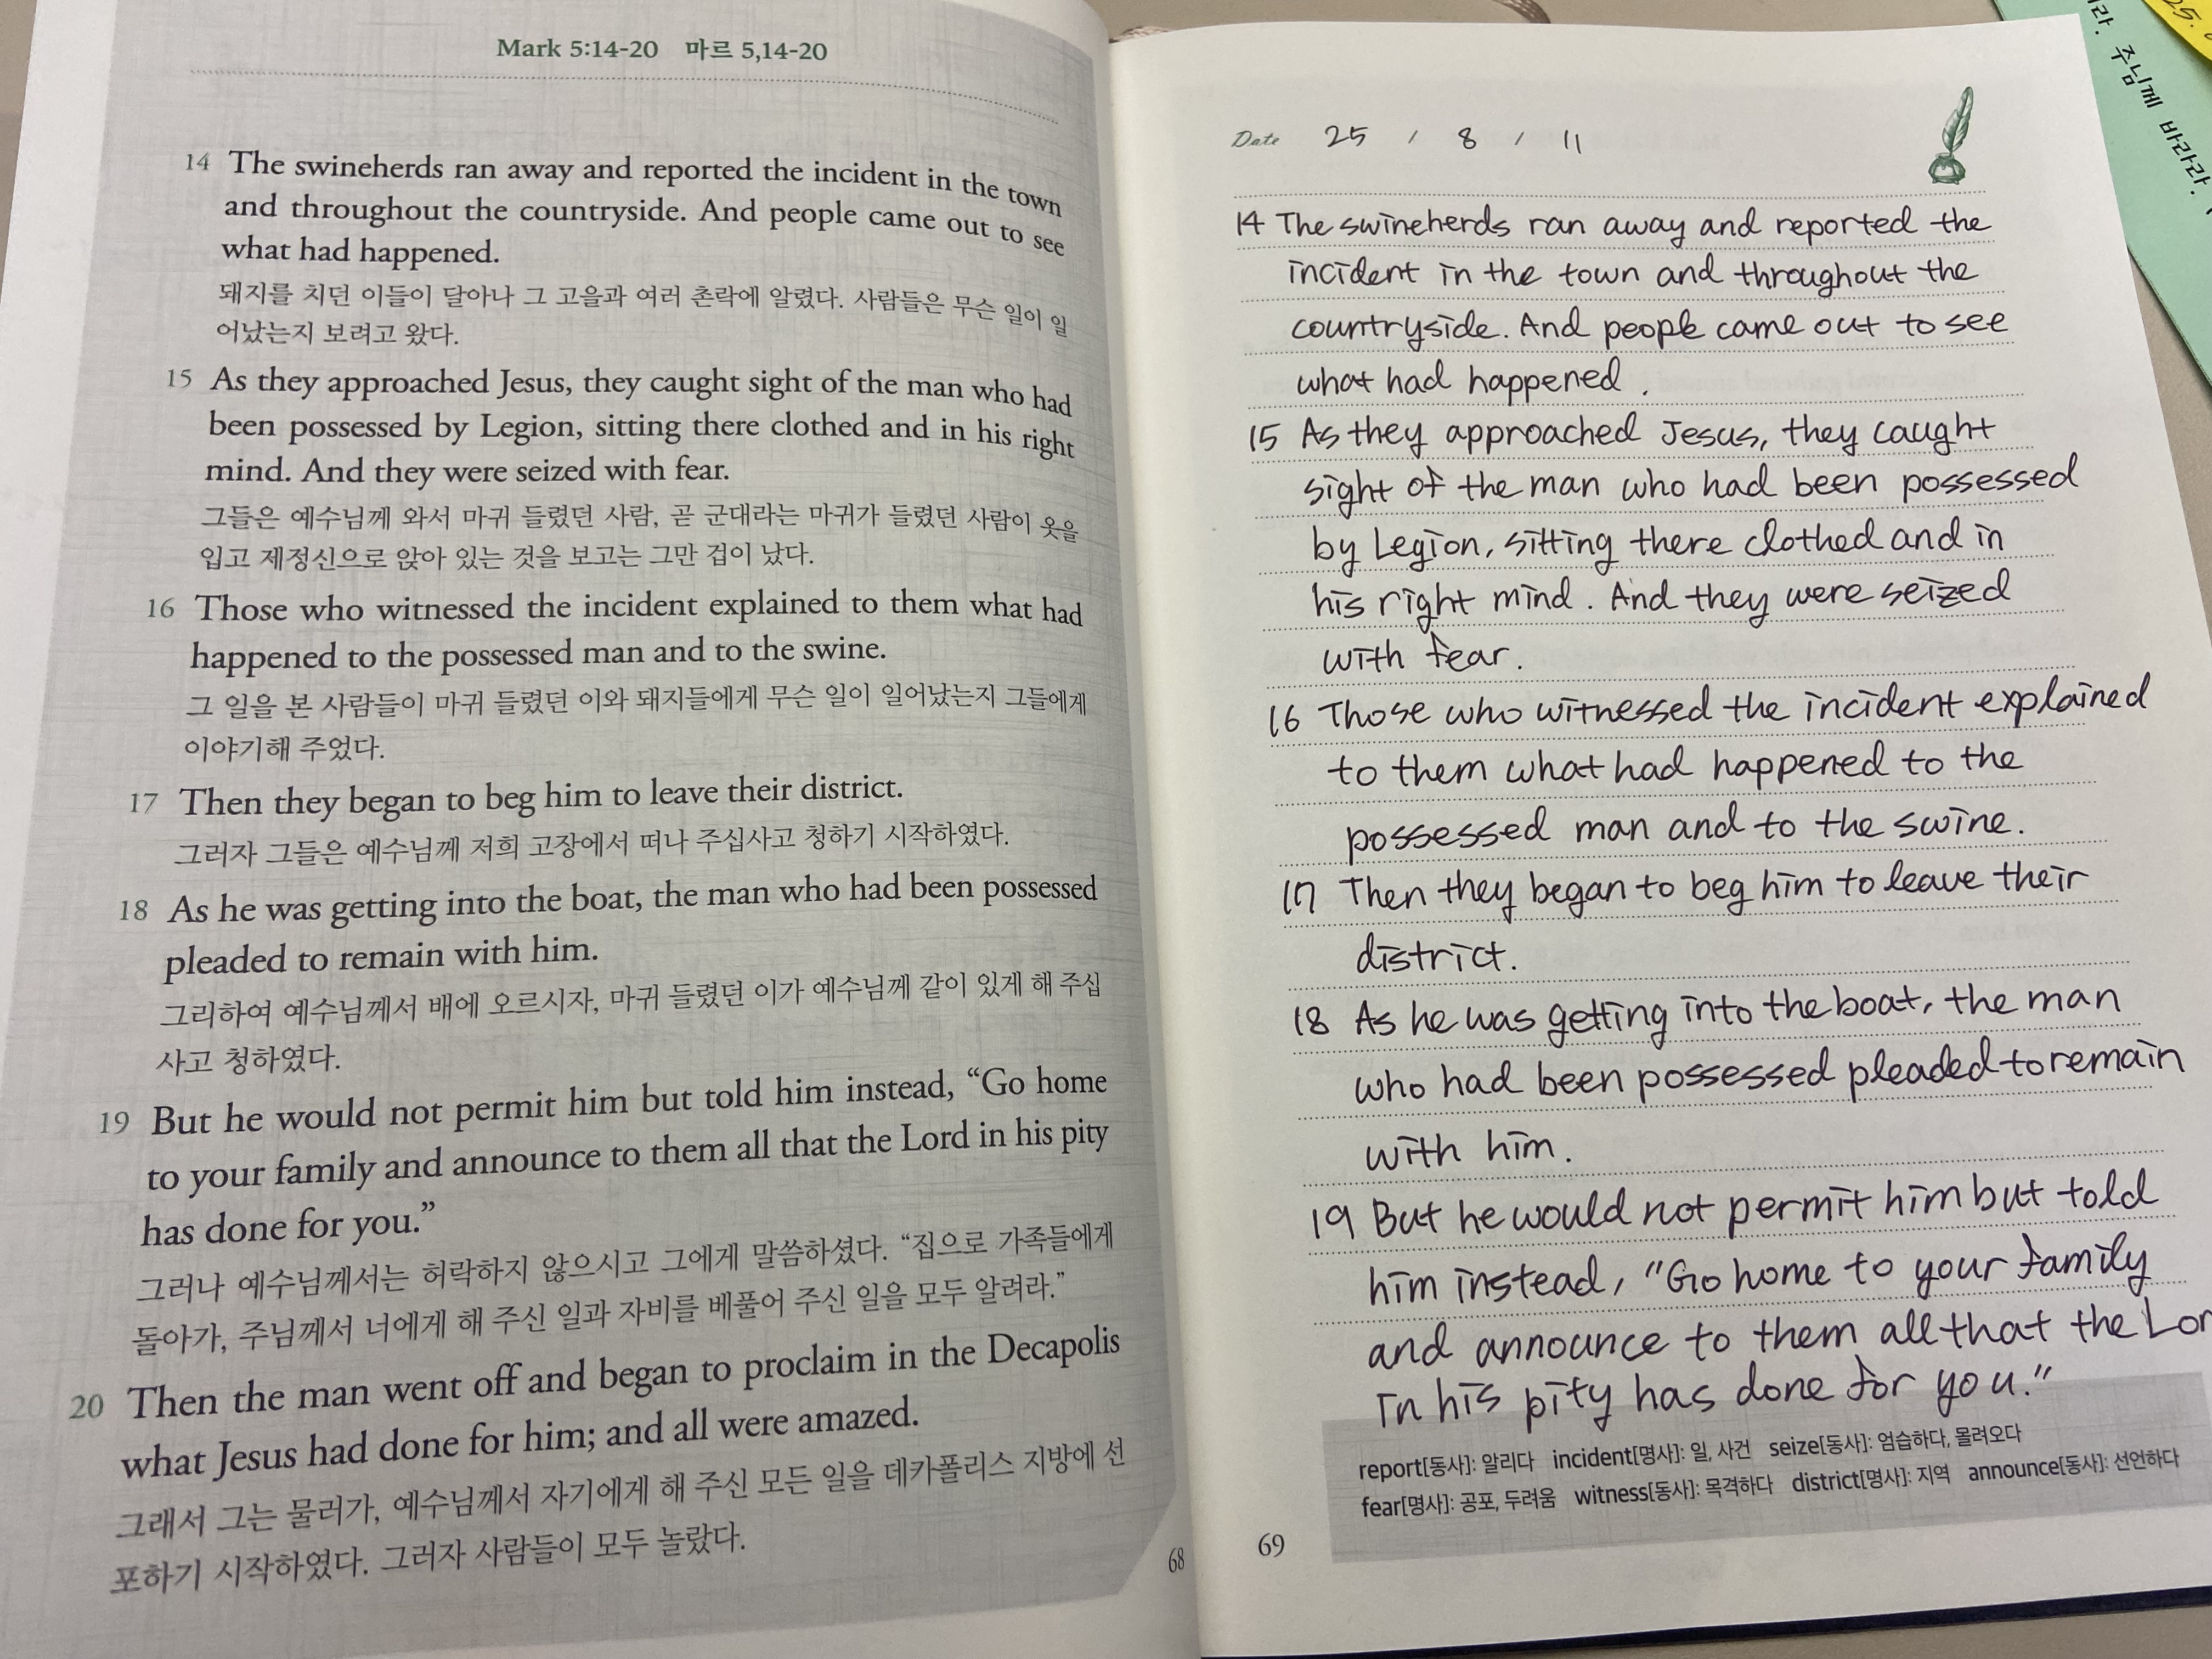 Mark 5:14-20 마르 5,14-20
14 The swineherds ran away and reported the incident in the town
and throughout the countryside. And people came out to see
what had happened.
돼지를 치던 이들이 달아나 그 고을과 여러 촌락에 알렸다. 사람들은 무슨 일이 일
어났는지 보려고 왔다.
15 As they approached Jesus, they caught sight of the man who had
been possessed by Legion, sitting there clothed and in his right
mind. And they were seized with fear.
그들은 예수님께 와서 마귀 들렸던 사람, 곧 군대라는 마귀가 들렸던 사람이 옷을
입고 제정신으로 앉아 있는 것을 보고는 그만 겁이 났다.
16 Those who witnessed the incident explained to them what had
happened to the possessed man and to the swine.
그 일을 본 사람들이 마귀 들렸던 이와 돼지들에게 무슨 일이 일어났는지 그들에게
이야기해 주었다.
17 Then they began to beg him to leave their district.
그러자 그들은 예수님께 저희 고장에서 떠나 주십사고 청하기 시작하였다.
18 As he was getting into the boat, the man who had been possessed
pleaded to remain with him.
그리하여 예수님께서 배에 오르시자, 마귀 들렸던 이가 예수님께 같이 있게 해 주십
사고 청하였다.
19 But he would not permit him but told him instead, “Go home
to your family and announce to them all that the Lord in his pity
has done for you.”
그러나 예수님께서는 허락하지 않으시고 그에게 말씀하셨다. “집으로 가족들에게
돌아가, 주님께서 너에게 해 주신 일과 자비를 베풀어 주신 일을 모두 알려라.”
20 Then the man went off and began to proclaim in the Decapolis
what Jesus had done for him; and all were amazed.
그래서 그는 물러가, 예수님께서 자기에게 해 주신 모든 일을 데카폴리스 지방에 선
포하기 시작하였다. 그러자 사람들이 모두 놀랐다.
68
Date 25 / 8 / 11
14 The swineherds ran away and reported the
incident in the town and throughout the
countryside. And people came out to see
what had happened.
15 As they approached Jesus, they caught
sight of the man who had been possessed
by Legion, sitting there clothed and in
his right mind. And they were seized
with fear.
16 Those who witnessed the incident explained
to them what had happened to the
possessed man and to the swine.
17 Then they began to beg him to leave their
district.
18 As he was getting into the boat, the man
who had been possessed pleaded to remain
with him.
19 But he would not permit him but told
him instead, "Go home to your family
and announce to them all that the Lor
in his pity has done for you."
report[동사]: 알리다 incident[명사]: 일, 사건 seize[동사]: 엄습하다, 몰려오다
fear[명사]: 공포, 두려움 witness[동사]: 목격하다 district[명사]: 지역 announce[동사]: 선언하다
69
주님께 바라라.